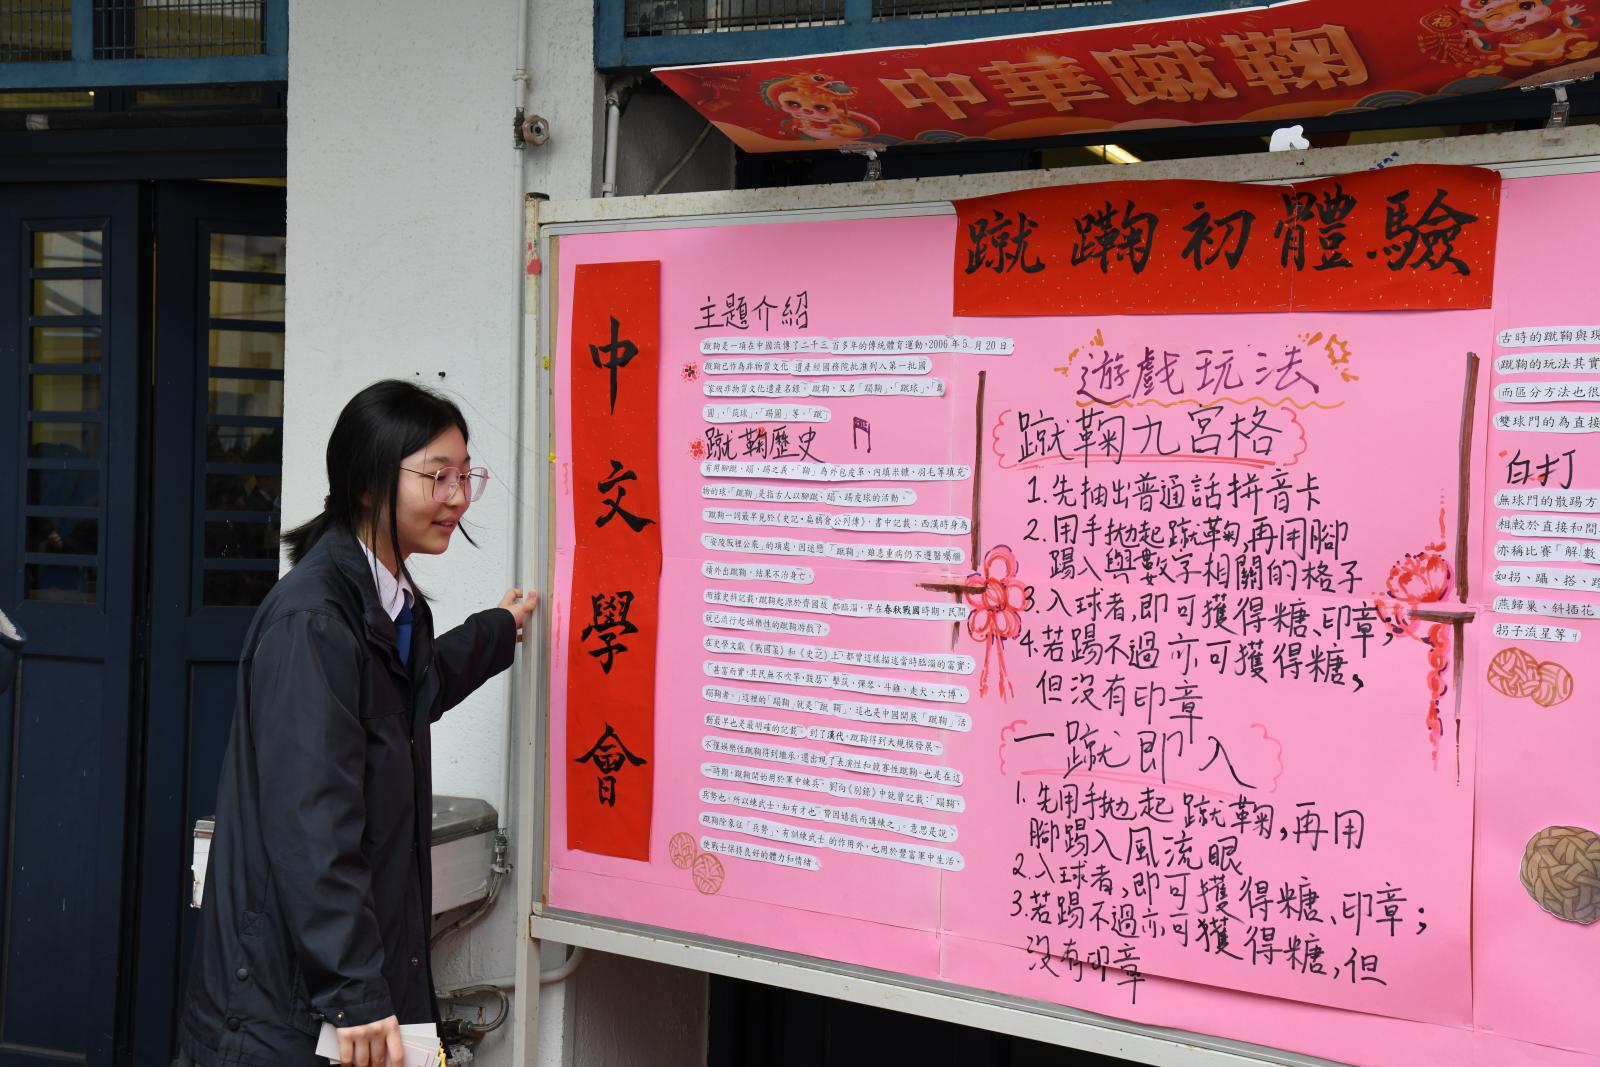 中華蹴鞠
福
蹴鞠初體驗
中文學會
主題介紹
蹴鞠是一項在中國流傳了二千三百多年的傳統體育運動,2006年5月20日
蹴鞠已作為非物質文化遺產經國務院批准列入第一批國
家級非物質文化遺產名錄。蹴鞠,又名「蹋鞠」、「蹴球」、「蹴
圓」、「筑球」、「踢圓」等。「蹴」
蹴鞠歷史
有用腳蹴、蹋、踢之義,「鞠」為外包皮革、內填米糠、羽毛等填充
物的球。「蹴鞠」是指古人以腳蹴、蹋、踢皮球的活動。
「蹴鞠一詞最早見於《史記·扁鵲倉公列傳》,書中記載:西漢時身為
「安陵阪裡公乘」的項處,因迷戀「蹴鞠」,雖患重病仍不遵醫囑繼
續外出蹴鞠,結果不治身亡。
而據史料記載,蹴鞠起源於齊國故都臨淄,早在春秋戰國時期,民間
就已流行起娛樂性的蹴鞠游戲了。
在史學文獻《戰國策》和《史記》上,都曾這樣描述當時臨淄的富實:
「甚富而實,其民無不吹竽、鼓瑟、擊筑、彈琴、斗雞、走犬、六博、
蹋鞠者。」這裡的「蹋鞠」就是「蹴鞠」,這也是中國開展「蹴鞠」活
動最早也是最明確的記載。到了漢代,蹴鞠得到大規模發展,
不僅娛樂性蹴鞠得到繼承,還出現了表演性和競賽性蹴鞠。也是在這
一時期,蹴鞠開始用於軍中練兵,劉向《別錄》中就曾記載:「蹋鞠,
兵勢也。所以練武士,知有才也,皆因嬉戲而講練之」。意思是說,
蹴鞠除象征「兵勢」、有訓練武士的作用外,也用於豐富軍中生活,
使戰士保持良好的體力和情緒。
遊戲玩法
蹴鞠九宮格
1.先抽出普通話拼音卡
2.用手拋起蹴鞠,再用腳
踢入與數字相關的格子
3.入球者,即可獲得糖、印章;
4.若踢不過亦可獲得糖,
但沒有印章
一蹴即入
1.先用手拋起蹴鞠,再用
腳踢入風流眼
2.入球者,即可獲得糖、印章;
3.若踢不過亦可獲得糖,但
沒有印章
古時的蹴鞠與現
蹴鞠的玩法其實
而區分方法也很
雙球門的為直接
白打
無球門的散踢方
相較於直接和間
亦稱比賽「解數
如拐、躡、搭、蹬
燕歸巢、斜插花
拐子流星等。